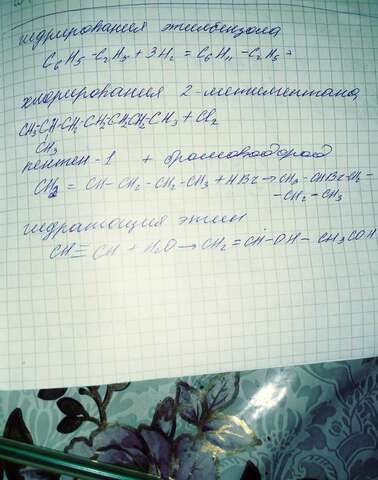 гидрирования этилбензола
C₆H₅-C₂H₅ + 3H₂ = C₆H₁₁-C₂H₅
хлорирования 2-метилгептана
CH₃-CH-CH₂-CH₂-CH₂-CH₂-CH₃ + Cl₂
CH₃
пентен-1 + бромоводород
CH₂ = CH-CH₂-CH₂-CH₃ + HBr → CH₃-CHBr-CH₂-
-CH₂-CH₃
гидратация этин
CH≡CH + H₂O → CH₂=CH-OH-CH₃COH